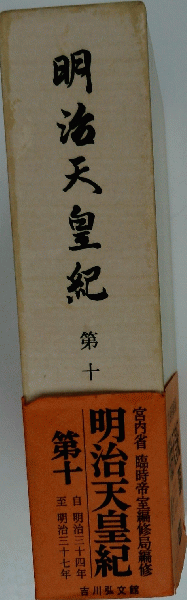 明治天皇紀
第十
宮内省 臨時帝室編修局編修
明治天皇紀
第十
自 明治三十四年
至 明治三十七年
吉川弘文館